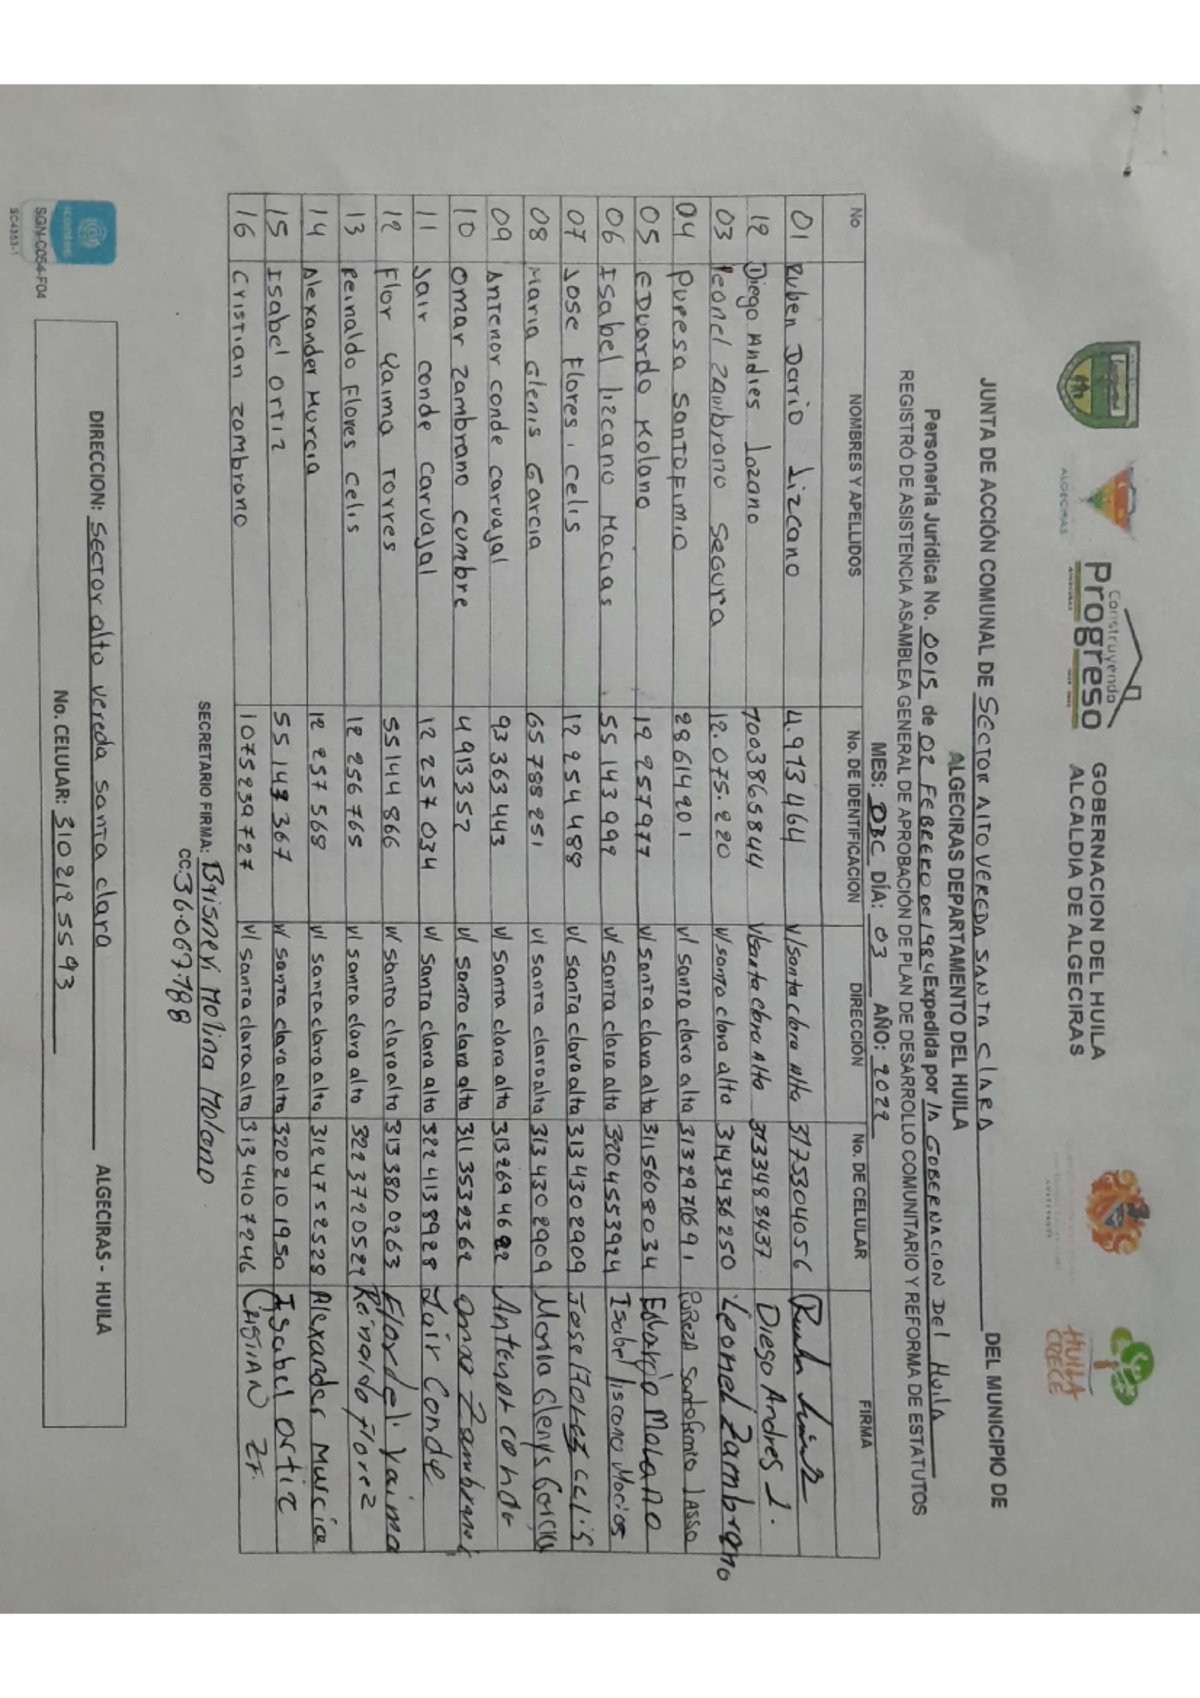 GOBERNACION DEL HUILA
ALCALDIA DE ALGECIRAS
Construyendo
Progreso
ALGECIRAS
HUILA
CRECE
JUNTA DE ACCIÓN COMUNAL DE SECTOR AlTO VEREDA SANTA ClARA DEL MUNICIPIO DE
ALGECIRAS DEPARTAMENTO DEL HUILA
Personería Juridica No. 0015 de 02 FEBRERO de 1984 Expedida por lA GOBERNACION DEL HuilA
REGISTRÓ DE ASISTENCIA ASAMBLEA GENERAL DE APROBACIÓN DE PLAN DE DESARROLLO COMUNITARIO Y REFORMA DE ESTATUTOS
MES: DBC DÍA: 03 AÑO: 2022
No NOMBRES Y APELLIDOS No. DE IDENTIFICACION DIRECCIÓN No. DE CELULAR FIRMA
01 Ruben Dario Lizcano 4.973464 v/santa clara Alta 3175304056
12 Diego Andres Lozano 7003865844 v/santa clara Alto 3133483437 Diego Andres L.
03 Leonel Zambrano Segura 12.075.220 v/santa clara alta 3143436250 Leonel Zambrano
04 Puresa Santofimio 28614201 v/ santa clara alta 3132971691 Pureza Santofimio lasso
05 Eduardo Molano 19257977 v/ santa clara alta 3115608034 Eduardo Molano
06 Isabel lizcano Macias 55143999 v/ santa clara alta 3204553924 Isabel liscano Macias
07 Jose Flores, celis 12254488 v/ santa clara alta 3134302909 Jose Flores celis
08 Maria Glenis Garcia 65788251 v/ santa clara alta 3134302909 Maria Glenys Garcia
09 Antenor conde carvajal 93363443 v/ santa clara alta 3132694622 Antenor conde
10 Omar zambrano cumbre 4913357 v/ santa clara alta 3113532362 Omar Zambrano
11 Jair conde carvajal 12257034 v/ santa clara alta 3224138928 Jair Conde
12 Flor Yaima Torres 55144866 v/ santa clara alta 3133800263 Flordeli Yaima
13 Reinaldo Flores Celis 12256765 v/ santa clara alto 3223720529 Reinaldo Florez
14 Alexander Murcia 12257568 v/ santa clara alta 3124752528 Alexander Murcia
15 Isabel Ortiz 55143367 v/ santa clara alta 3202101950 Isabel Ortiz
16 Cristian zambrano 1075239727 v/ santa clara alta 3134407246 Cristian ZF.
SECRETARIO FIRMA: Brisnevi Molina Molano
CC:36.067.788
DIRECCION: Sector alto vereda santa clara ALGECIRAS - HUILA
No. CELULAR: 3102125593
icontec
SGN-C054-F04
SC4353-1